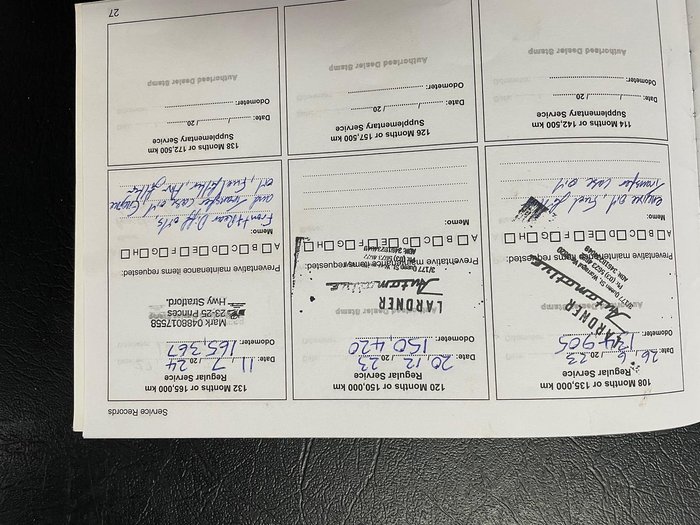 Service Records
108 Months or 135,000 km
Regular Service
Date: 26/6/2023
Odometer: 134 905
LARDNER
Automotive
2/177 Queen St, Warragul
Preventative maintenance items requested:
A B C D E F G H
Memo:
engine oil Fuel
Transfer case oil
120 Months or 150,000 km
Regular Service
Date: 20/12/2023
Odometer: 150,420
LARDNER
Automotive
2/177 Queen St, Warragul
Preventative maintenance items requested:
A B C D E F G H
Memo:
132 Months or 165,000 km
Regular Service
Date: 11/7/2024
Odometer: 165,367
Mark 0488017558
23-25 Princes
Hwy Stratford
Preventative maintenance items requested:
A B C D E F G H
Memo:
Front+Rear Diff oils
and transfer case oil Engine
oil, Fuel filter, Air filter
114 Months or 142,500 km
Supplementary Service
Date: / /20
Odometer:
Authorised Dealer Stamp
126 Months or 157,500 km
Supplementary Service
Date: / /20
Odometer:
Authorised Dealer Stamp
138 Months or 172,500 km
Supplementary Service
Date: / /20
Odometer:
Authorised Dealer Stamp
27